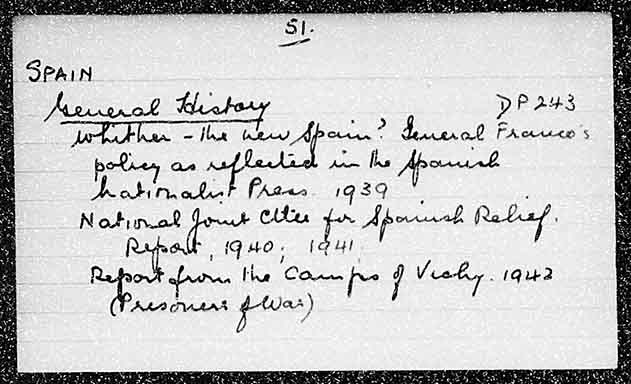 51.
SPAIN
General History DP 243
Whither - the new Spain? General Franco's
policy as reflected in the Spanish
Nationalist Press. 1939
National Joint Cttee for Spanish Relief.
Report, 1940; 1941.
Report from the Camps of Vichy. 1942
(Prisoners of War)